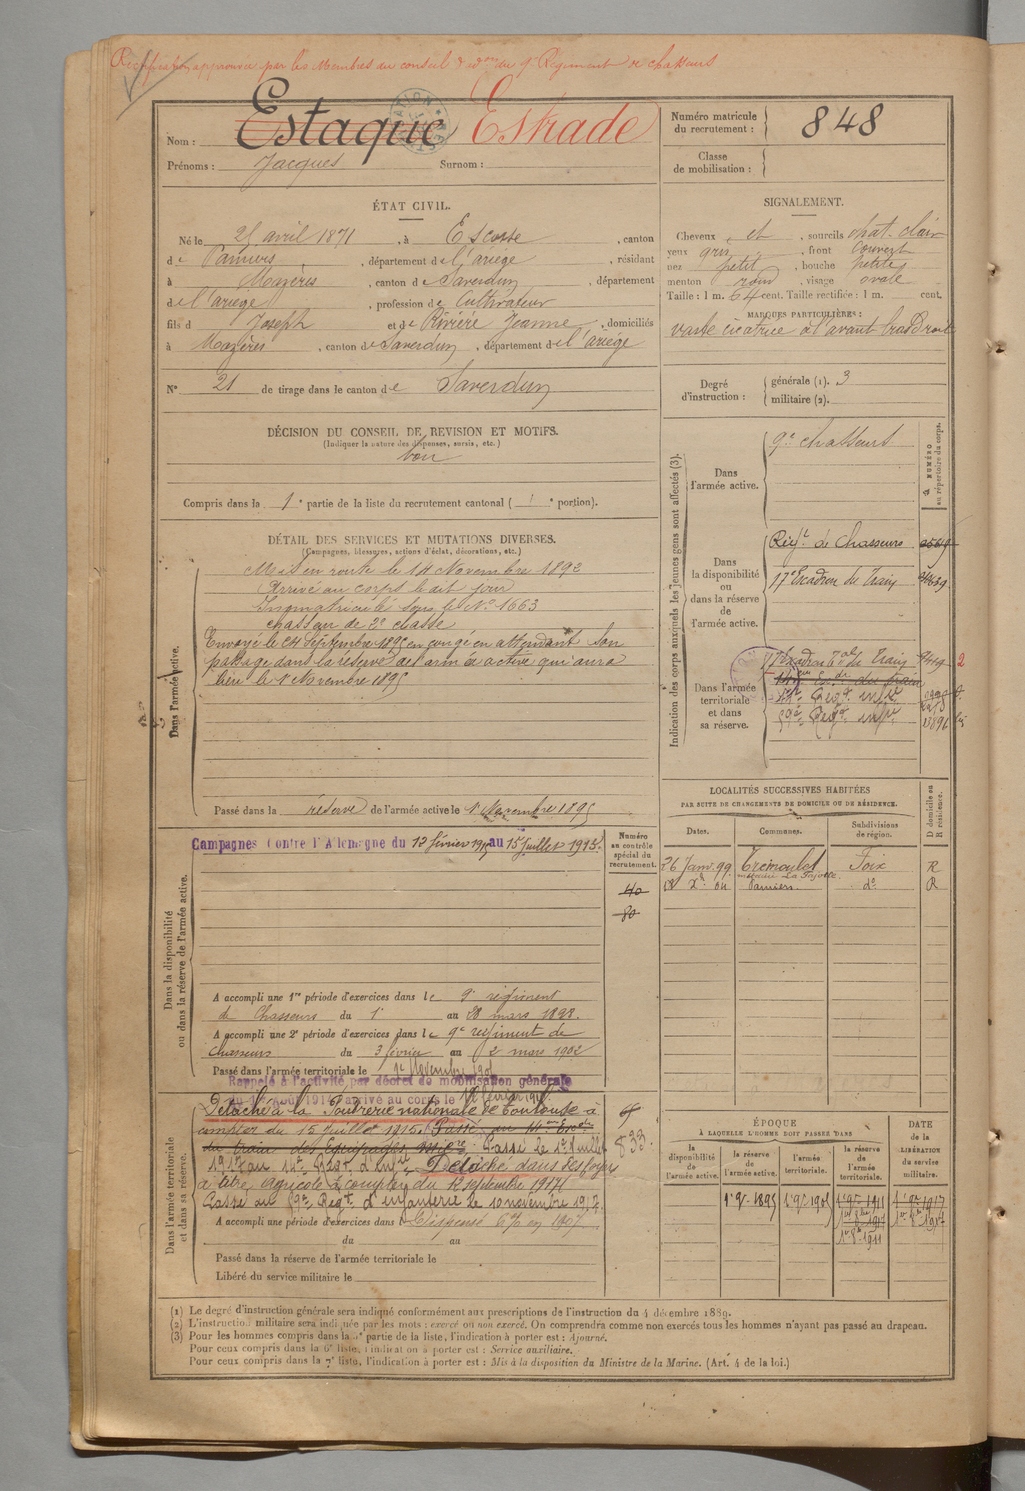 Rectification approuvée par les Membres du conseil d'adon du 9e Régiment de chasseurs
Nom : Estaque Estrade
Prénoms : Jacques Surnom :
Numéro matricule du recrutement : 848
Classe de mobilisation :
ÉTAT CIVIL.
Né le 25 avril 1871, à Escosse, canton
de Pamiers, département de l'ariège, résidant
à Mazères, canton de Saverdun, département
de l'ariège, profession de Cultivateur
fils d Joseph et de Rivière Jeanne, domiciliés
à Mazères, canton de Saverdun, département de l'ariège
N° 21 de tirage dans le canton de Saverdun
SIGNALEMENT.
Cheveux et, sourcils chat. clair
yeux gris, front couvert
nez petit, bouche petite
menton rond, visage ovale
Taille : 1 m. 64 cent. Taille rectifiée : 1 m. cent.
MARQUES PARTICULIÈRES :
vaste cicatrice à l'avant bras Droit
Degré d'instruction : générale (1). 3
militaire (2).
DÉCISION DU CONSEIL DE REVISION ET MOTIFS.
(Indiquer la nature des dispenses, sursis, etc.)
bon
Compris dans la 1e partie de la liste du recrutement cantonal ( e portion).
DÉTAIL DES SERVICES ET MUTATIONS DIVERSES.
(Campagnes, blessures, actions d'éclat, décorations, etc.)
Dans l'armée active.
Mis en route le 14 Novembre 1892
Arrivé au corps le dit jour
Immatriculé sous le No 1663
chasseur de 2e classe
Envoyé le 24 Septembre 1895 en congé en attendant son
passage dans la réserve de l'armée active qui aura
lieu le 1er Novembre 1895
Passé dans la réserve de l'armée active le 1er Novembre 1895
Indication des corps auxquels les jeunes gens sont affectés (3).
NUMÉRO au répertoire du corps.
Dans l'armée active.
9e chasseurs
Dans la disponibilité ou dans la réserve de l'armée active.
Régt de Chasseurs
17e Escadron du Train
Dans l'armée territoriale et dans sa réserve.
17 Escadron Tal du Train
14e Régt infie
59e Régt infie
LOCALITÉS SUCCESSIVES HABITÉES
PAR SUITE DE CHANGEMENTS DE DOMICILE OU DE RÉSIDENCE.
Dates. Communes. Subdivisions de région. D domicile ou R résidence.
26 Janv. 99 Trémoulet Foix R
Pamiers do R
Dans la disponibilité ou dans la réserve de l'armée active.
Numéro au contrôle spécial du recrutement.
Campagnes Contre l'Allemagne du 12 février 1915 au 15 Juillet 1915.
40
80
A accompli une 1re période d'exercices dans le 9e régiment
de Chasseurs du 1er au 28 mars 1898.
A accompli une 2e période d'exercices dans le 9e régiment de
Chasseurs du 3 février au 2 mars 1902
Passé dans l'armée territoriale le 1er Novembre 1905
Dans l'armée territoriale et dans sa réserve.
Rappelé à l'activité par décret de mobilisation générale
du 1er Août 1914 arrivé au corps le 12 février 1915
Détaché à la Poudrerie nationale de Toulouse à
compter du 15 juillet 1915. Passé au
du train des Equipages Passé le 1er Juillet
1917 au 14e Régt d'Infie Détaché dans ses foyers
à titre agricole à compter du 12 septembre 1917
Passé au 59e Régt d'infanterie le 10 novembre 1917.
833
A accompli une période d'exercices dans le Dispensé en 1907
du au
Passé dans la réserve de l'armée territoriale le
Libéré du service militaire le
ÉPOQUE
À LAQUELLE L'HOMME DOIT PASSER DANS
la disponibilité de l'armée active. la réserve de l'armée active. l'armée territoriale. la réserve de l'armée territoriale.
DATE de la LIBÉRATION du service militaire.
1er 9bre 1895 1er 9bre 1905 1er 9bre 1911 1er 9bre 1917
1er 8bre 1911
(1) Le degré d'instruction générale sera indiqué conformément aux prescriptions de l'instruction du 4 décembre 1889.
(2) L'instruction militaire sera indiquée par les mots : exercé ou non exercé. On comprendra comme non exercés tous les hommes n'ayant pas passé au drapeau.
(3) Pour les hommes compris dans la 4e partie de la liste, l'indication à porter est : Ajourné.
Pour ceux compris dans la 6e liste, l'indication à porter est : Service auxiliaire.
Pour ceux compris dans la 7e liste, l'indication à porter est : Mis à la disposition du Ministre de la Marine. (Art. 4 de la loi.)